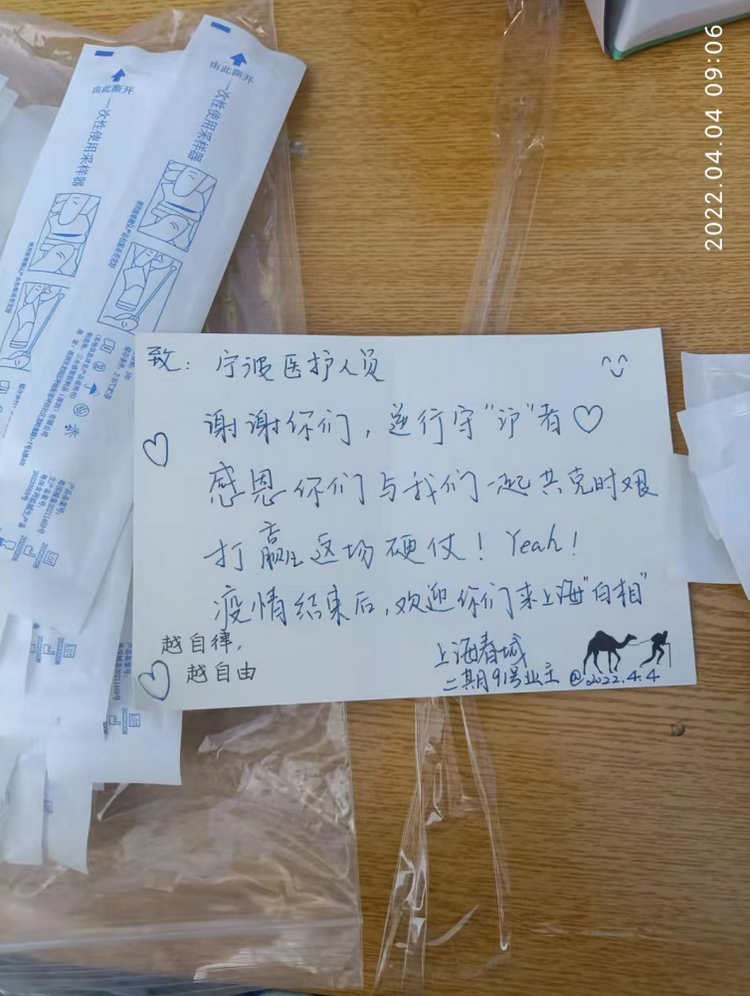 2022.04.04 09:06
由此撕开
一次性使用采样器
由此撕开
一次性使用采样器
致：宁波医护人员
谢谢你们，逆行守“沪”者♡
感恩你们与我们一起共克时艰
打赢这场硬仗！Yeah！
疫情结束后，欢迎你们来上海“白相”
越自律，
越自由
上海春城
二期91号业主 @2022.4.4